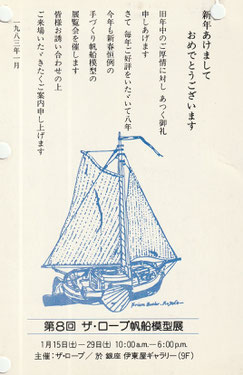 新年あけまして
おめでとうございます
旧年中のご厚情に対し あつく御礼
申しあげます
さて 毎年ご好評をいたゞいて八年
今年も新春恒例の
手づくり帆船模型の
展覧会を催します
皆様お誘い合わせの上
ご来場いたゞきたくご案内申し上げます
一九八三年一月
第8回 ザ・ロープ帆船模型展
1月15日(土)—29日(土) 10:00a.m.—6:00p.m.
主催:ザ・ロープ/於 銀座 伊東屋ギャラリー(9F)